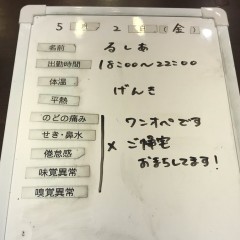 5月2日(金)
名前 るしあ
出勤時間 18:00〜22:00
体温 げんき
平熱
のどの痛み ワンオペです
せき・鼻水 × ご帰宅
倦怠感 おまちしてます!
味覚異常
嗅覚異常